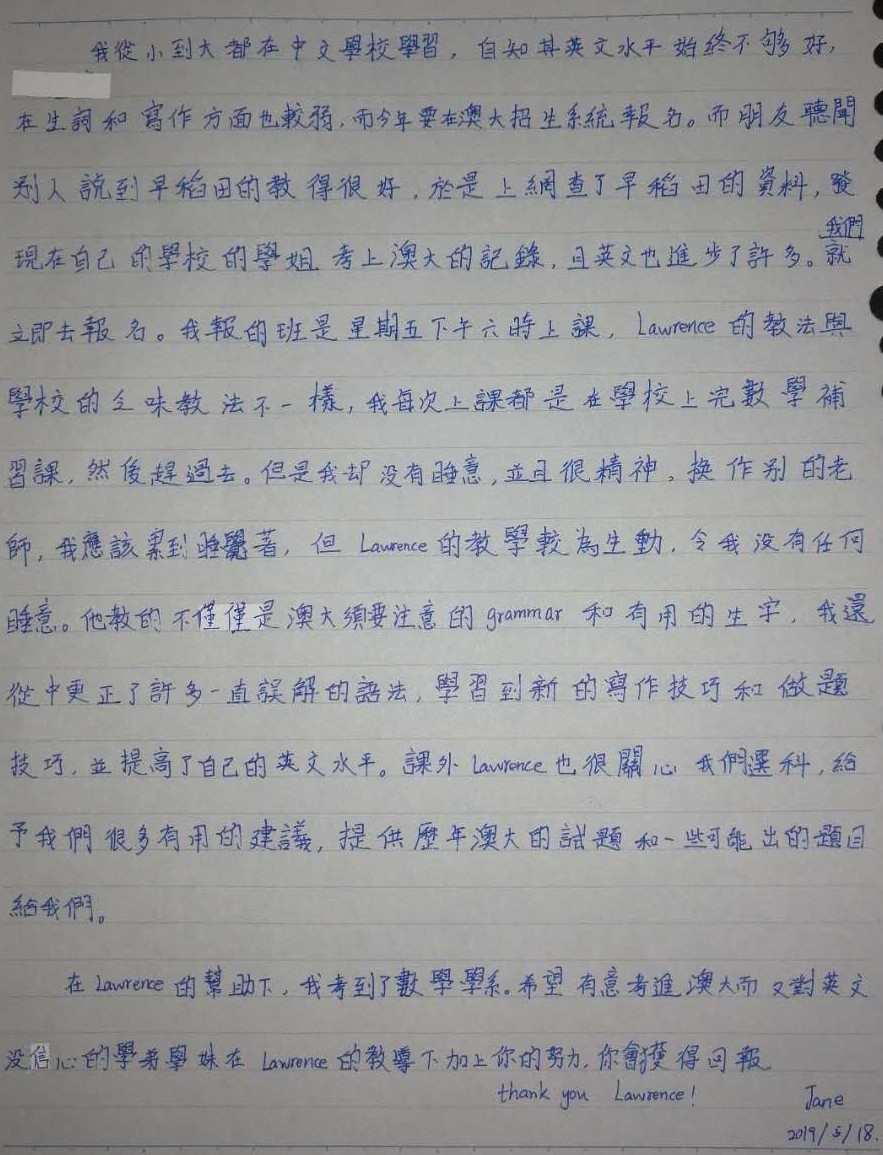 我從小到大都在中文學校學習，自知其英文水平始終不够好，
在生詞和寫作方面也較弱，而今年要在澳大招生系統報名。而朋友聽聞
別人說到早稻田的教得很好，於是上網查了早稻田的資料，發
現在自己的學校的學姐考上澳大的記錄，且英文也進步了許多。我們就
立即去報名。我報的班是星期五下午六時上課，Lawrence 的教法與
學校的乏味教法不一樣，我每次上課都是在學校上完數學補
習課，然後趕過去。但是我却沒有睡意，並且很精神。換作別的老
師，我應該累到睡覺著，但 Lawrence 的教學較為生動，令我沒有任何
睡意。他教的不僅僅是澳大須要注意的 grammar 和有用的生字，我還
從中更正了許多一直誤解的語法，學習到新的寫作技巧和做題
技巧，並提高了自己的英文水平。課外 Lawrence 也很關心我們選科，給
予我們很多有用的建議，提供歷年澳大的試題和一些可能出的題目
給我們。
在 Lawrence 的幫助下，我考到了數學學系。希望有意考進澳大而又對英文
沒信心的學弟學妹在 Lawrence 的教導下加上你的努力，你會獲得回報
thank you Lawrence!
Jane
2019/5/18.